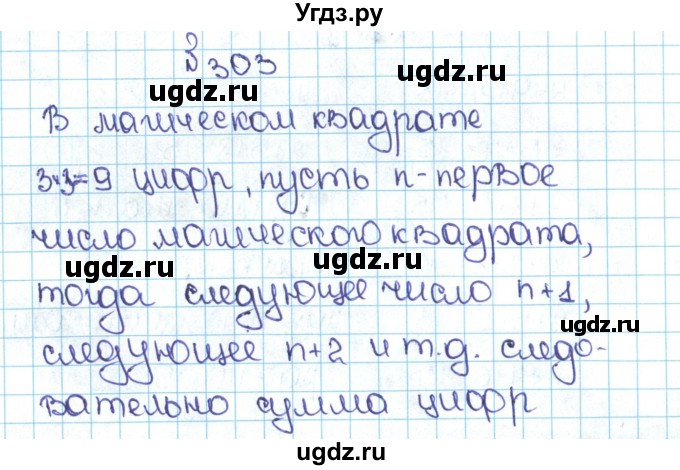 Угдз.ру
№303
ugdz.ru ugdz.ru
В магическом квадрате
3·3=9 цифр, пусть n-первое
число магического квадрата,
ugdz.ru ugdz.ru
тогда следующее число n+1,
ugdz.ru
следующее n+2 и т.д. следо-
вательно сумма цифр
ugdz.ru